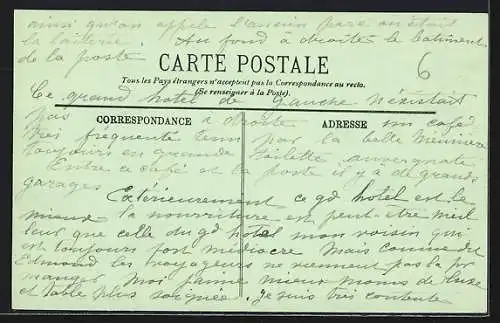 ainsi qu'on appelle l'ancien parc où était
la laiterie. Au fond à droite le bâtiment
de la poste
6
CARTE POSTALE
Tous les Pays étrangers n'acceptent pas la Correspondance au recto.
(Se renseigner à la Poste).
Ce grand hôtel de gauche n'existait
pas à droite un café
CORRESPONDANCE
ADRESSE
très fréquenté tenu par la belle Meunière
toujours en grande toilette auvergnate
Entre ce café et la poste il y a de grands
garages
Extérieurement ce gd hotel est le
mieux la nourriture est peut-être meil
leur que celle du gd hotel mon voisin qui
est toujours fort médiocre Mais comme dit
Edmond les voyageurs ne viennent pas là pr
manger Moi j'aime mieux moins de luxe
et table plus soignée. Je suis très contente